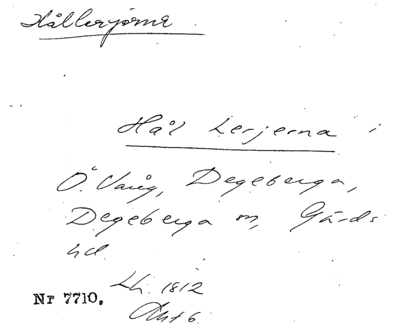 Hållerjorna
Hål Lerjerna i
Ö. Vång, Degeberga,
Degeberga sn, Gärds
hd.
Lh. 1812
Akt 6.
Nr 7710.